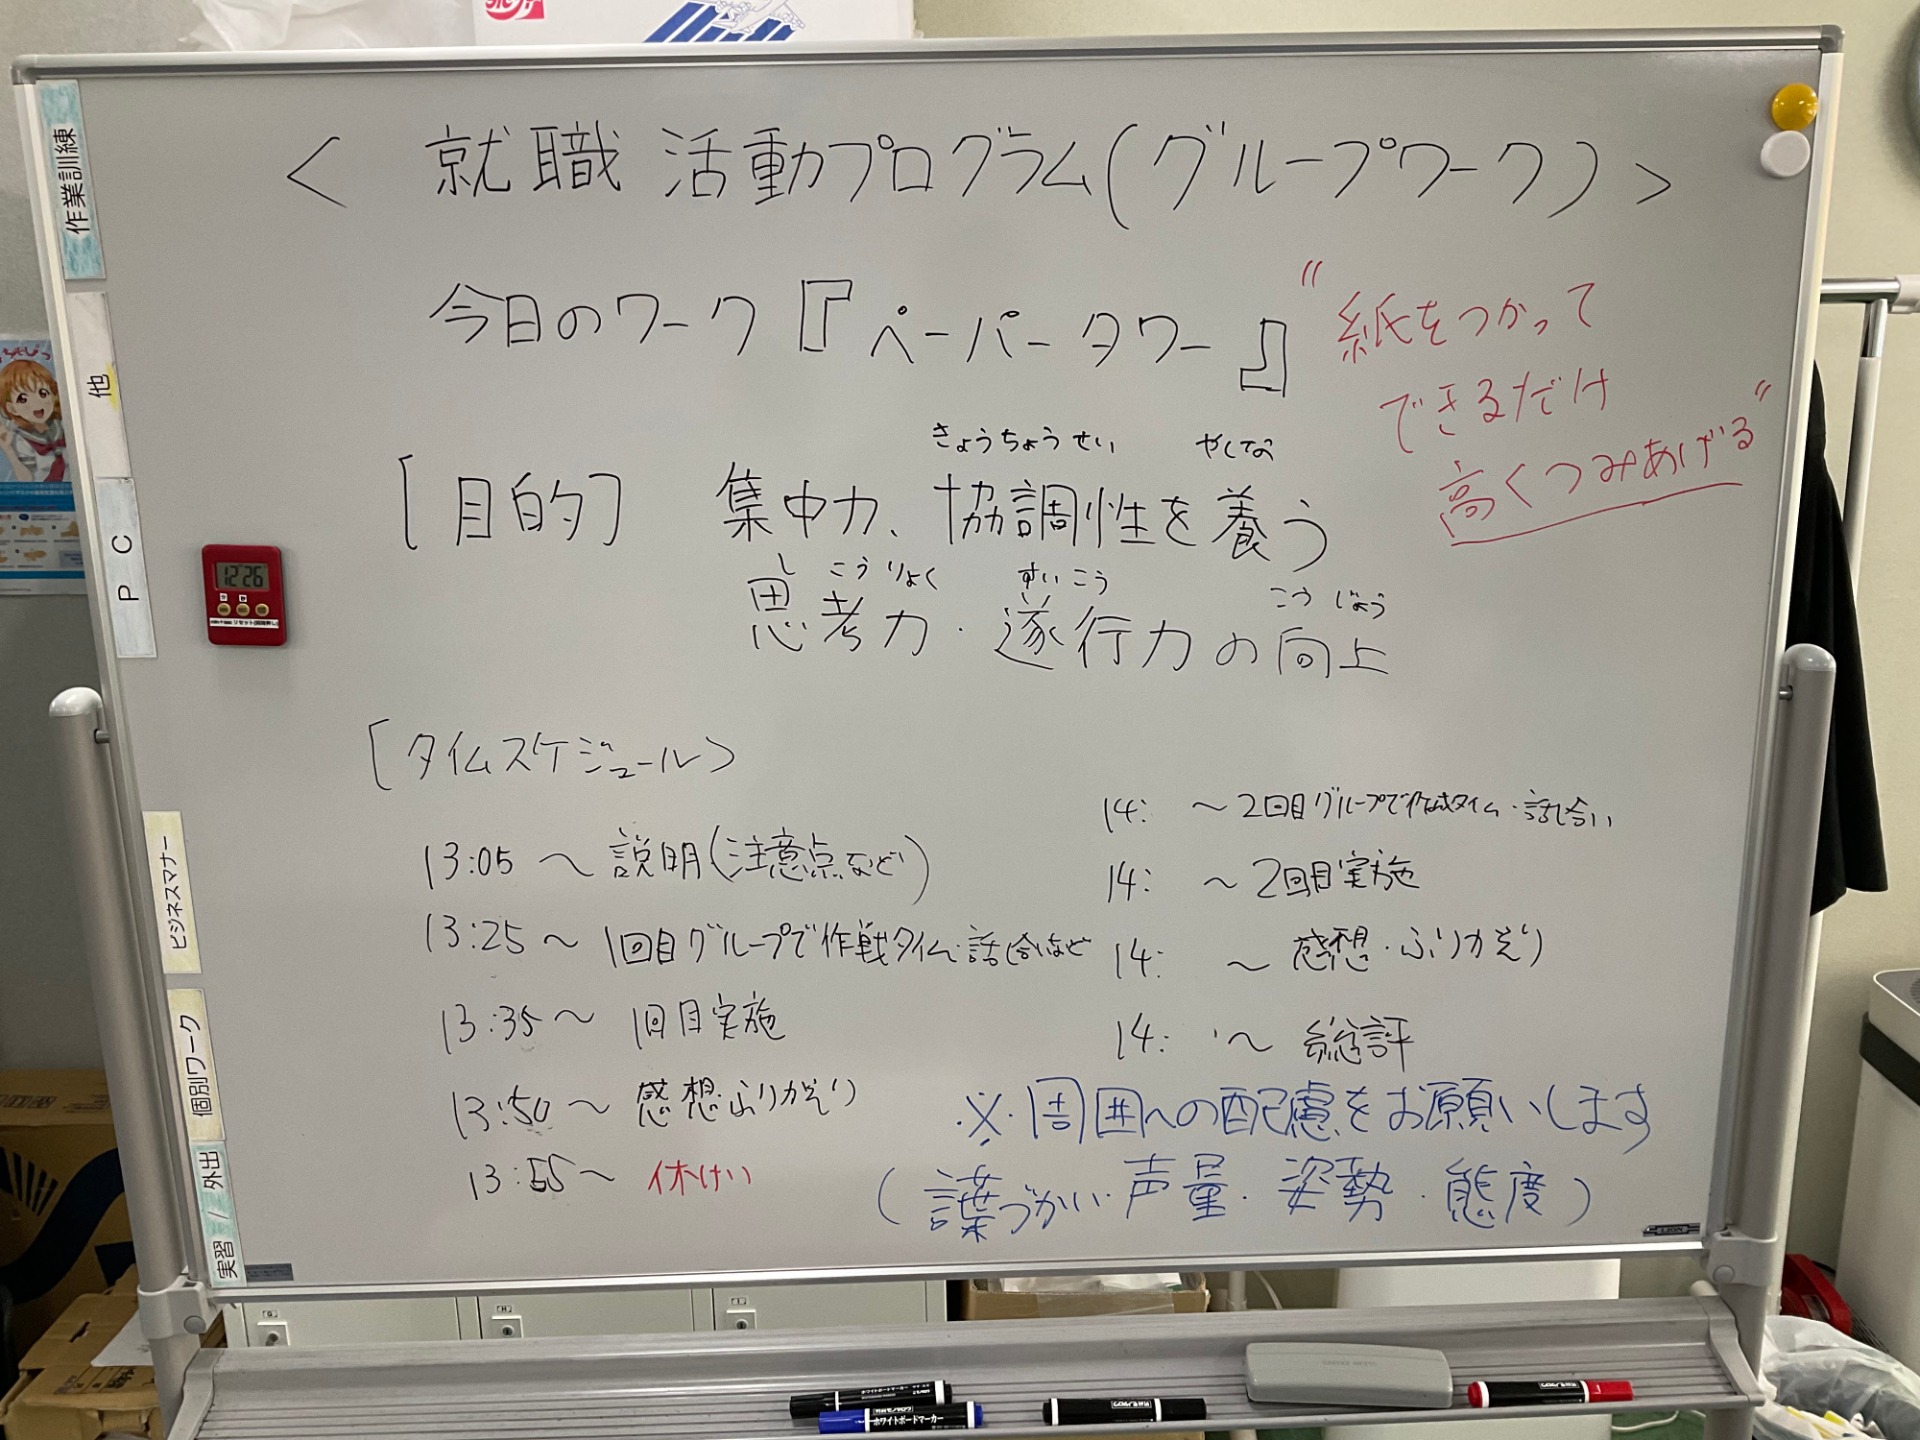 ＜ 就職活動プログラム(グループワーク) ＞
今日のワーク『ペーパータワー』
"紙をつかって
できるだけ
高くつみあげる"
きょうちょうせい やしな
[目的] 集中力、協調性を養う
しこうりょく すいこう こうじょう
思考力・遂行力の向上
[タイムスケジュール＞
13:05 ～ 説明(注意点など)
13:25 ～ 1回目グループで作戦タイム・話し合いなど
13:35 ～ 1回目実施
13:50 ～ 感想・ふりかえり
13:55 ～ 休けい
14: ～ 2回目グループで作成タイム・話し合い
14: ～ 2回目実施
14: ～ 感想・ふりかえり
14: ～ 総評
※・周囲への配慮をお願いします
(葉づかい・声量・姿勢・態度)
作業訓練
他
PC
ビジネスマナー
個別ワーク
実習 / 外出
12:26
G
H
I
LION
ホワイトボードマーカー
ホワイトボードマーカー